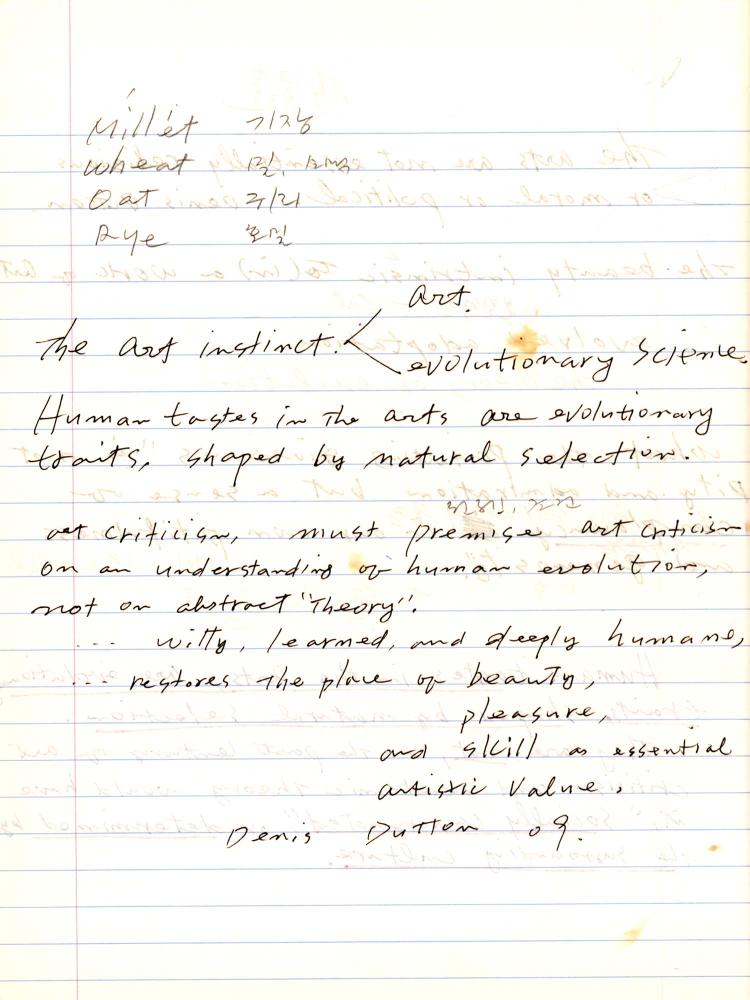 Millet 기장
wheat 밀, 소맥
Oat 귀리
Rye 호밀
art.
the art instinct.
evolutionary Science.
Human tastes in the arts are evolutionary
traits, shaped by natural selection.
art criticism, must premise art criticism
on an understanding of human evolution,
not on abstract "Theory".
... witty, learned, and deeply humane,
... restores the place of beauty,
pleasure,
and skill as essential
artistic value.
Denis Dutton 09.